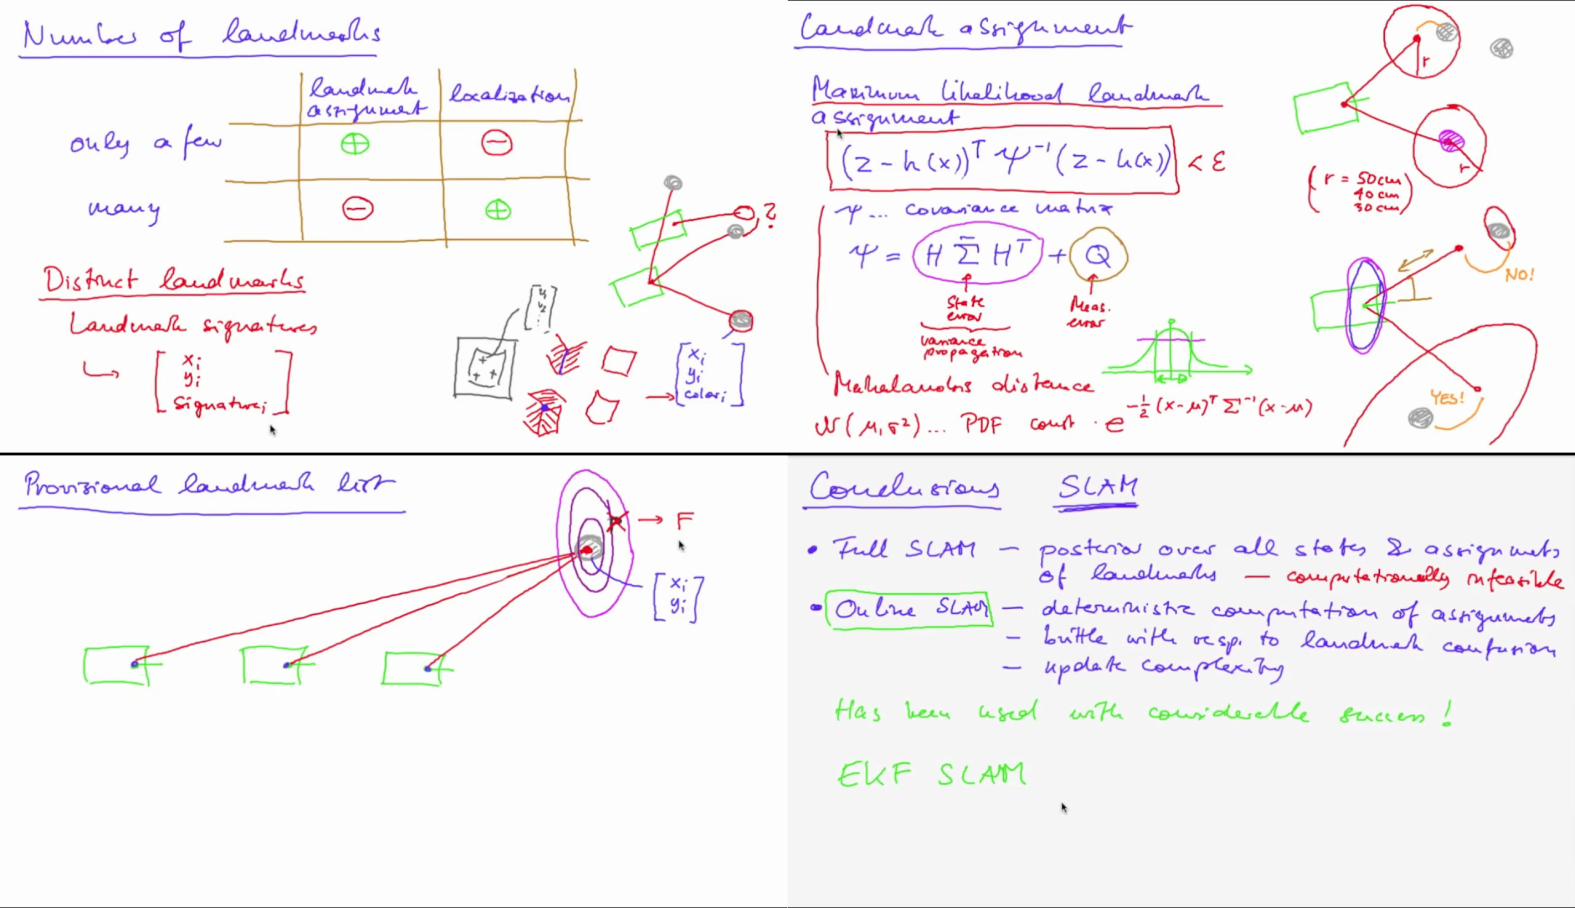 Number of landmarks
landmark assignment
localization
only a few ⊕ ⊖
many ⊖ ⊕
?
Distinct landmarks
Landmark signatures
→ [ xi
yi
signaturei ]
→ [ xi
yi
colori ]
Landmark assignment
Maximum likelihood landmark
assignment
(z - h(x))ᵀ Ψ⁻¹ (z - h(x)) < ε
Ψ... covariance matrix
Ψ = H Σ̄ Hᵀ + Q
State error
Meas. error
variance propagation
Mahalanobis distance
N(μ, σ²)... PDF const · e^(-½ (x-μ)ᵀ Σ⁻¹ (x-μ))
r
r
( r = 50cm
40cm
30cm )
NO!
YES!
Provisional landmark list
→ F
[ xi
yi ]
Conclusions SLAM
• Full SLAM — posterior over all states & assignmets
of landmarks — computationally infeasible
• Online SLAM — deterministic computation of assignmets
— brittle with resp. to landmark confusion
— update complexity
Has been used with considerable success!
EKF SLAM